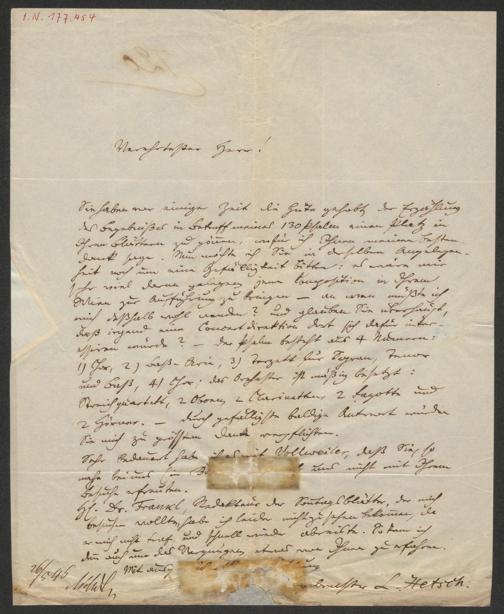 I.N. 177.454
Verehrtester Herr!
Sie haben vor einiger Zeit die Güte gehabt der Erzählung
des Begebnißes in Betreff meines 130 Psalm einen Platz in
Ihren Blättern zu gönnen, wofür ich Ihnen meinen besten
Dank sage. Nun möchte ich Sie in derselben Angelegen-
heit noch um eine Gefälligkeit bitten: es wäre mir
sehr viel daran gelegen jene Composition in Ihrem
Wien zur Aufführung zu bringen — an wen müßte ich
mich deßhalb wohl wenden? und glauben Sie überhaupt,
daß irgend eine Concertdirektion dort sich dafür inter
essiren würde? — der Psalm besteht aus 4 Nummern:
1) Chor, 2) Baß-Arie, 3) Terzett für Sopran, Tenor
und Baß, 4) Chor; das Orchester ist mäßig besetzt:
Streichquartett, 2 Oboen, 2 Clarinetten 2 Fagotte und
2 Hörner. — durch gefälligste baldige Antwort würden
Sie mich zu größtem Dank verpflichten.
Sehr bedauert habe ich mit Vollweiler, daß Sie, so
nahe bei uns in uns nicht mit Ihrem
Besuche erfreuten.
Hr. Dr. Frankl, Redakteur der Sonntagsblätter, der mich
besuchen wollte, habe ich leider nicht zu sehen bekommen, da
er mich nicht traf und schnell wieder abreiste. So kam ich
denn auch um das Vergnügen etwas von Ihnen zu erfahren.
Mit
26/5 45 L. Hetsch.